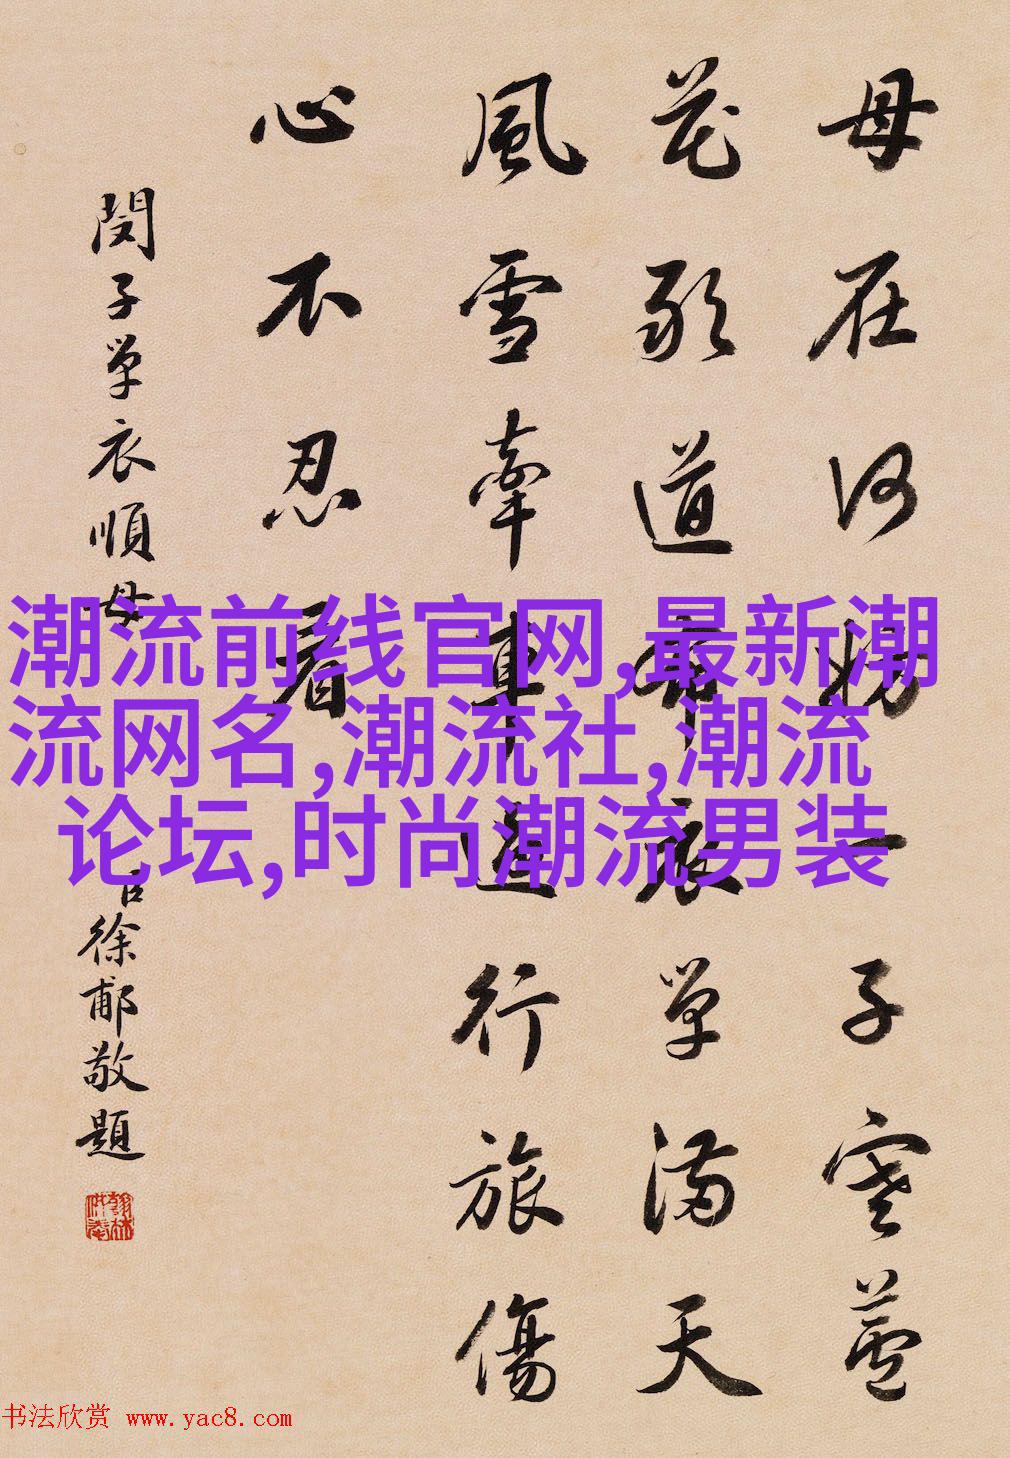 母在何妨一子寒蘆
花敢道衣單滿天
風雪牽車行旅傷
心不忍看
閔子單衣順母
臣徐郙敬題
潮流前线官网,最新潮
流网名,潮流社,潮流
论坛,时尚潮流男装
书法欣赏 www.yac8.com